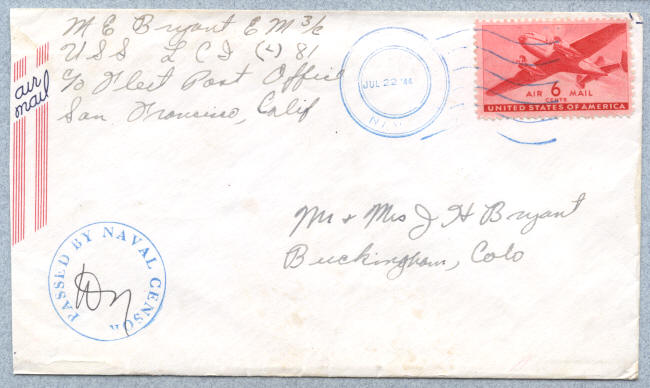 M E Bryant E M 3/c
USS LCI (L) 81
c/o Fleet Post Office
San Francisco, Calif
air mail
JUL 22 '44
AIR 6 MAIL
CENTS
UNITED STATES OF AMERICA
Mr & Mrs J H Bryant
Buckingham, Colo
PASSED BY NAVAL CENSOR